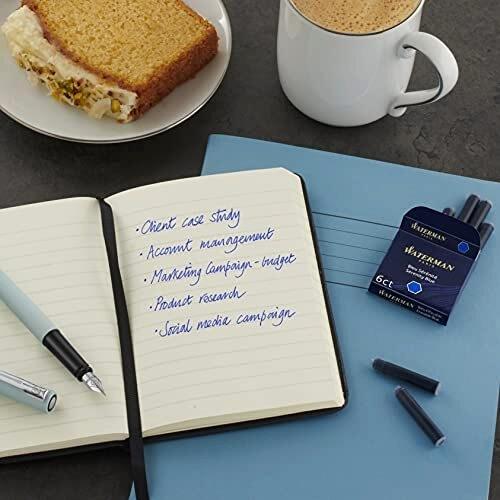 · Client case study
· Account management
· Marketing Campaign - budget
· Product research
· Social media campaign
WATERMAN
PARIS
WATERMAN
PARIS
Bleu Sérénité
Serenity Blue
6ct
WATERMAN